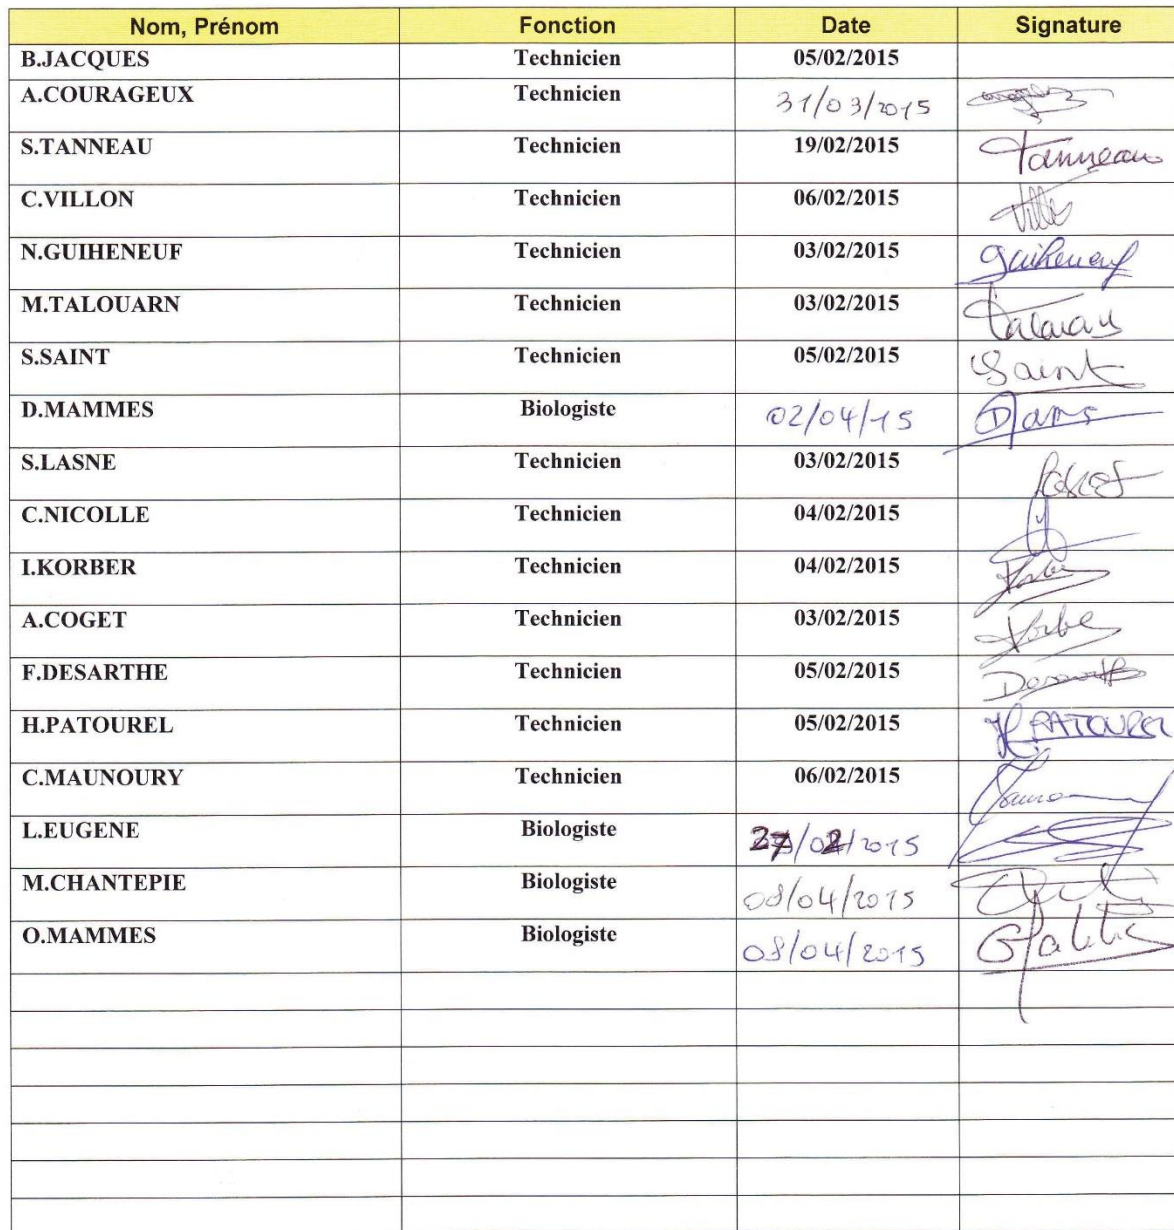 Nom, Prénom Fonction Date Signature
B.JACQUES Technicien 05/02/2015
A.COURAGEUX Technicien 31/03/2015
S.TANNEAU Technicien 19/02/2015 Tanneau
C.VILLON Technicien 06/02/2015
N.GUIHENEUF Technicien 03/02/2015 Guiheneuf
M.TALOUARN Technicien 03/02/2015
S.SAINT Technicien 05/02/2015 Saint
D.MAMMES Biologiste 02/04/15
S.LASNE Technicien 03/02/2015
C.NICOLLE Technicien 04/02/2015
I.KORBER Technicien 04/02/2015
A.COGET Technicien 03/02/2015
F.DESARTHE Technicien 05/02/2015
H.PATOUREL Technicien 05/02/2015 H.PATOUREL
C.MAUNOURY Technicien 06/02/2015
L.EUGENE Biologiste 27/02/2015
M.CHANTEPIE Biologiste 08/04/2015
O.MAMMES Biologiste 08/04/2015